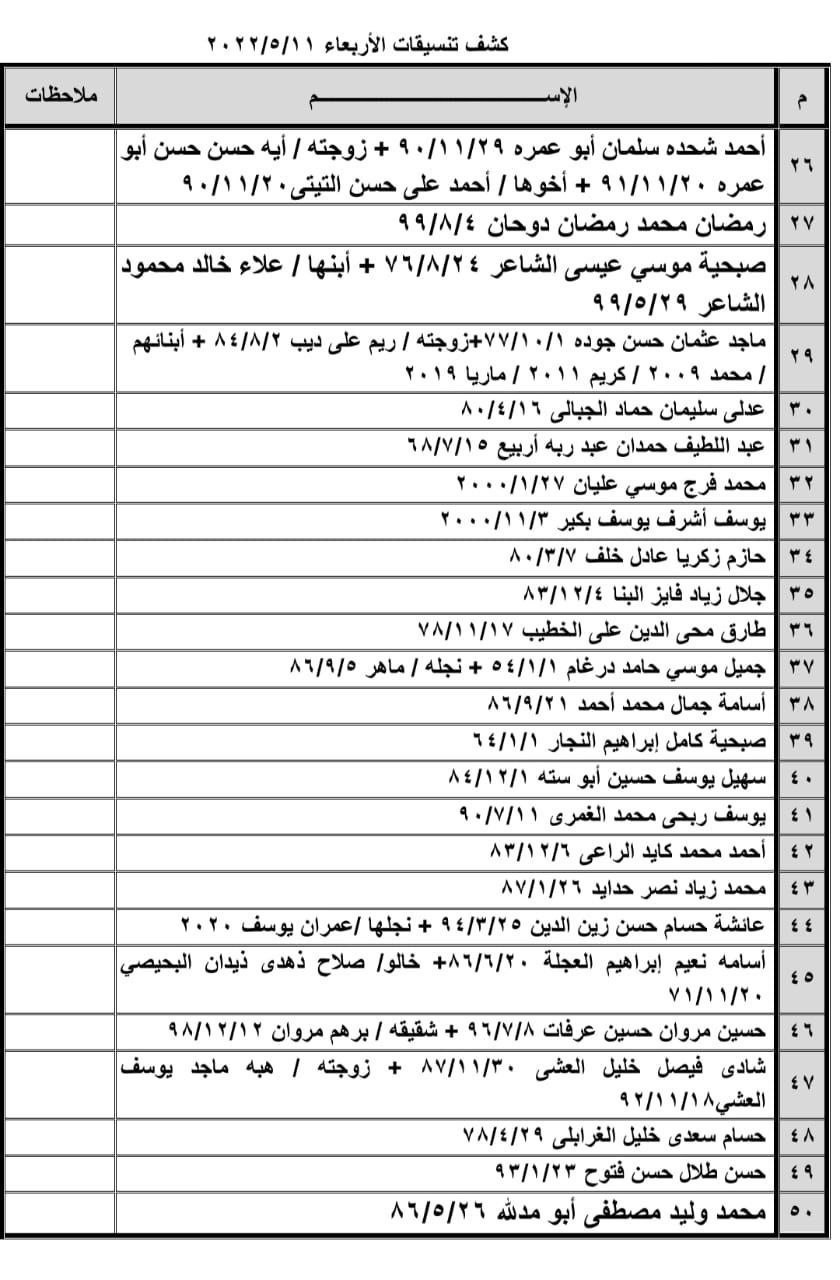 كشف تنسيقات الأربعاء ٢٠٢٢/٥/١١
م الإســـــــــــــم ملاحظات
٢٦ أحمد شحده سلمان أبو عمره ٩٠/١١/٢٩ + زوجته / أيه حسن حسن أبو
عمره ٩١/١١/٢٠ + أخوها / أحمد على حسن التيتى٩٠/١١/٢٠
٢٧ رمضان محمد رمضان دوحان ٩٩/٨/٤
٢٨ صبحية موسي عيسى الشاعر ٧٦/٨/٢٤ + أبنها / علاء خالد محمود
الشاعر ٩٩/٥/٢٩
٢٩ ماجد عثمان حسن جوده ٧٧/١٠/١+زوجته / ريم على ديب ٨٤/٨/٢ + أبنائهم
/ محمد ٢٠٠٩ / كريم ٢٠١١ / ماريا ٢٠١٩
٣٠ عدلى سليمان حماد الجبالى ٨٠/٤/١٦
٣١ عبد اللطيف حمدان عبد ربه أربيع ٦٨/٧/١٥
٣٢ محمد فرج موسي عليان ٢٠٠٠/١/٢٧
٣٣ يوسف أشرف يوسف بكير ٢٠٠٠/١١/٣
٣٤ حازم زكريا عادل خلف ٨٠/٣/٧
٣٥ جلال زياد فايز البنا ٨٣/١٢/٤
٣٦ طارق محى الدين على الخطيب ٧٨/١١/١٧
٣٧ جميل موسي حامد درغام ٥٤/١/١ + نجله / ماهر ٨٦/٩/٥
٣٨ أسامة جمال محمد أحمد ٨٦/٩/٢١
٣٩ صبحية كامل إبراهيم النجار ٦٤/١/١
٤٠ سهيل يوسف حسين أبو سته ٨٤/١٢/١
٤١ يوسف ربحى محمد الغمرى ٩٠/٧/١١
٤٢ أحمد محمد كايد الراعى ٨٣/١٢/٦
٤٣ محمد زياد نصر حدايد ٨٧/١/٢٦
٤٤ عائشة حسام حسن زين الدين ٩٤/٣/٢٥ + نجلها /عمران يوسف ٢٠٢٠
٤٥ أسامه نعيم إبراهيم العجلة ٨٦/٦/٢٠+ خالو/ صلاح ذهدى ذيدان البحيصي
٧١/١١/٢٠
٤٦ حسين مروان حسين عرفات ٩٦/٧/٨ + شقيقه / برهم مروان ٩٨/١٢/١٢
٤٧ شادى فيصل خليل العشى ٨٧/١١/٣٠ + زوجته / هبه ماجد يوسف
العشي٩٢/١١/١٨
٤٨ حسام سعدى خليل الغرابلى ٧٨/٤/٢٩
٤٩ حسن طلال حسن فتوح ٩٣/١/٢٣
٥٠ محمد وليد مصطفى أبو مدلله ٨٦/٥/٢٦